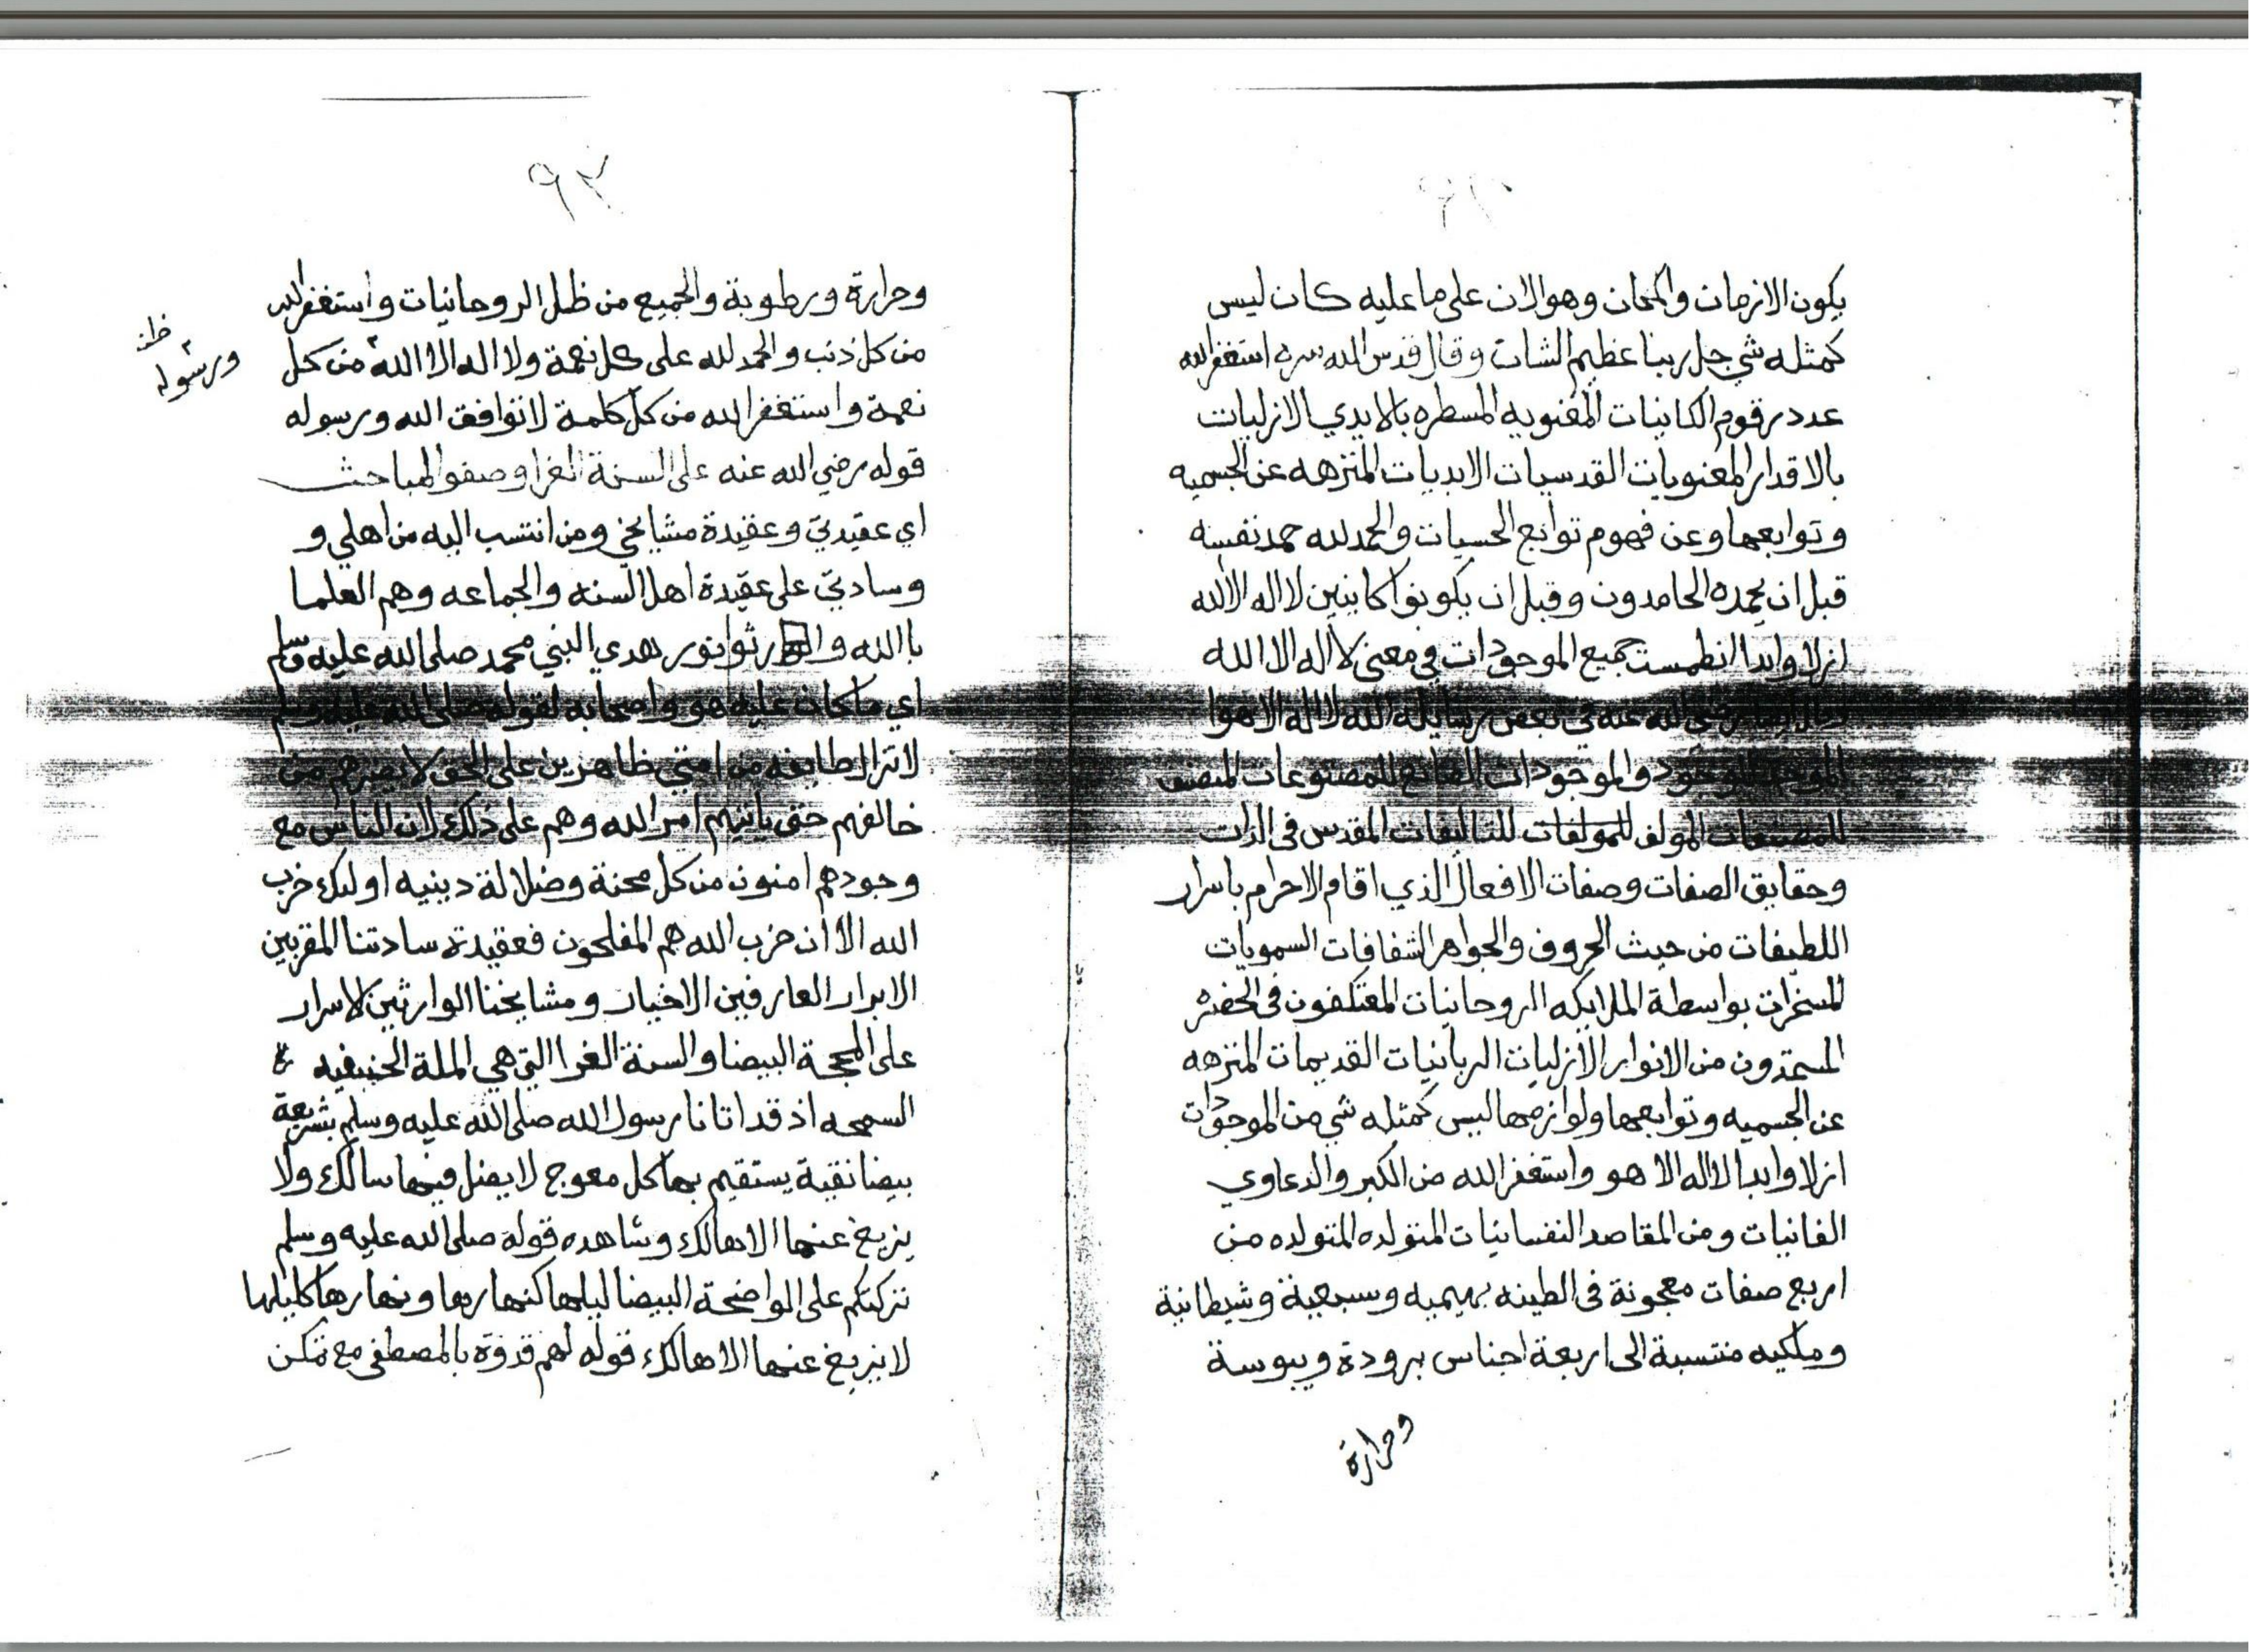 يكون الازمان والمكان وهو الان على ما عليه كان ليس
كمثله شي جل ربنا عظيم الشان وقال قدس الله سره استغفر الله
عدد رقوم الكاينات المعنويه المسطره بالايدي الازليات
بالاقدار المعنويات القدسيات الابديات المنزهه عن الجسميه
وتوابعها وعن فهوم توابع الحسيات والحمد لله حمد نفسه
قبل ان يحمده الحامدون وقبل ان يكونوا كاينين لا اله الا الله
ازلا وابدا انطمست جميع الموجودات في معنى لا اله الا الله
وقال ايضا رضي الله عنه في بعض رسايله الله لا اله الا هوا
الموجد للوجود والموجودات الصانع للمصنوعات المصنف
للمصنفات المولف للمولفات للتاليفات المقدس في الذات
وحقايق الصفات وصفات الافعال الذي اقام الاجرام باسرار
اللطيفات من حيث الحروف والجواهر الشفافات السمويات
المسخرات بواسطة الملايكه الروحانيات المعتكفون في الحضره
المستمدون من الانوار الازليات الربانيات القديمات المنزهه
عن الجسميه وتوابعها ولوازمها ليس كمثله شي من الموجودات
ازلا وابدا لا اله الا هو واستغفر الله من الكبر والدعاوي
الفانيات ومن المقاصد النفسانيات المتولده المتولده من
اربع صفات معجونة في الطينه بهيميه وسبعية وشيطانية
وملكيه منتسبة الى اربعة اجناس برودة ويبوسة
وحرارة
٩٣
وحرارة ورطوبة والجميع من ظل الروحانيات واستغفر الله
من كل ذنب والحمد لله على كل نعمة ولا اله الا الله من كل
ورسوله
نعمة واستغفر الله من كل كلمة لا توافق الله ورسوله
قوله رضي الله عنه على السنة الغرا وصفو المباحث
اي عقيدتي وعقيدة مشايخي ومن انتسب اليه من اهلي و
وسادتي على عقيدة اهل السنه والجماعه وهم العلما
بالله ورثوا نور هدي النبي محمد صلى الله عليه وسلم
اي ما كان عليه هو واصحابه لقوله صلى الله عليه وسلم
لا تزال طايفه من امتي ظاهرين على الحق لا يضرهم من
خالفهم حتى ياتيهم امر الله وهم على ذلك لان الناس مع
وجودهم امنون من كل محنة وضلالة دينيه اوليك حزب
الله الا ان حزب الله هم المفلحون فعقيدة سادتنا المقربين
الابرار العارفين الاخيار ومشايخنا الوارثين لاسرار
على المحجة البيضا والسنة الغرا التي هي الملة الحنيفيه
السمحه اذ قد اتانا رسول الله صلى الله عليه وسلم بشريعة
بيضا نقية يستقيم بها كل معوج لا يضل فيها سالك ولا
يزيغ عنها الا هالك وشاهده قوله صلى الله عليه وسلم
تركتكم على الواضحة البيضا ليلها كنهارها ونهارها كليلها
لا يزيغ عنها الا هالك قوله لهم قدوة بالمصطفى مع تمكن